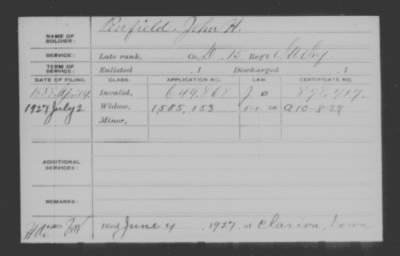 NAME OF SOLDIER: Penfield, John H.
SERVICE: Late rank, Co. 15 Reg't Cav
TERM OF SERVICE: Enlisted , 1 Discharged , 1
DATE OF FILING. CLASS. APPLICATION NO. LAW. CERTIFICATE NO.
Invalid,
1927 July 2 Widow, 1,585,153 A10-8-27
Minor,
ADDITIONAL SERVICES:
REMARKS:
Died June 4, 1927, at Clarion, Iowa